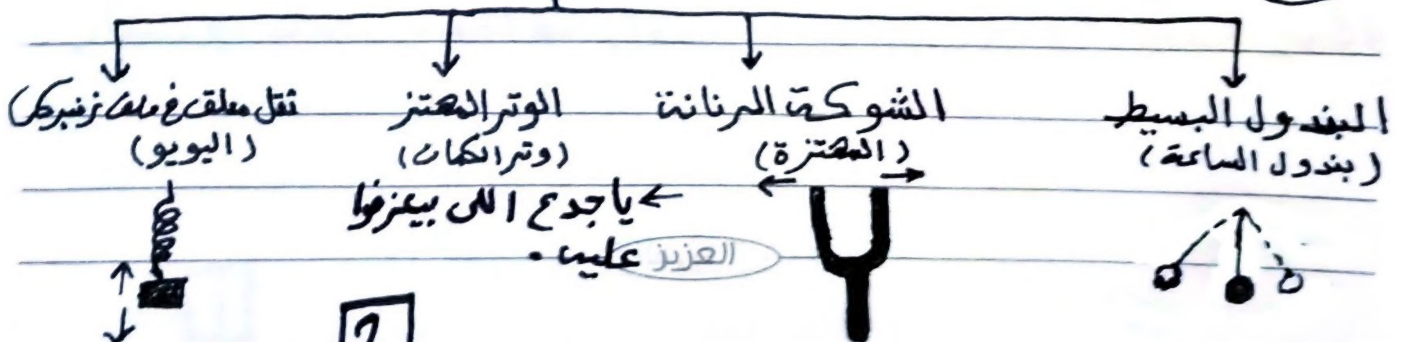 البندول البسيط
(بندول الساعة)
الشوكة الرنانة
(المهتزة)
الوتر المهتز
(وتر الكمان)
← ياجدع اللى بيعزفوا
عليه.
ثقل معلق في ملف زنبركى
(اليويو)
العزيز
2